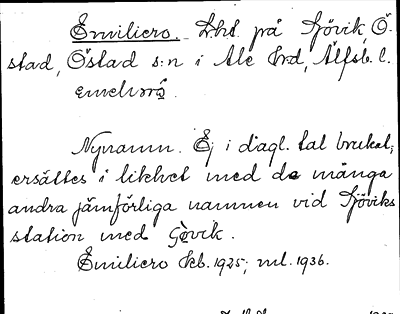 Emiliero. Lht. på Sjövik, Ö-
stad, Östad s:n i Ale hrd, Älfsb. l.
emelırω̄
Nynamn. Ej i dagl. tal brukat;
ersättes i likhet med de många
andra jämförliga namnen vid Sjöviks
station med Sjövik.
Emiliero Kb. 1925; ml. 1936.